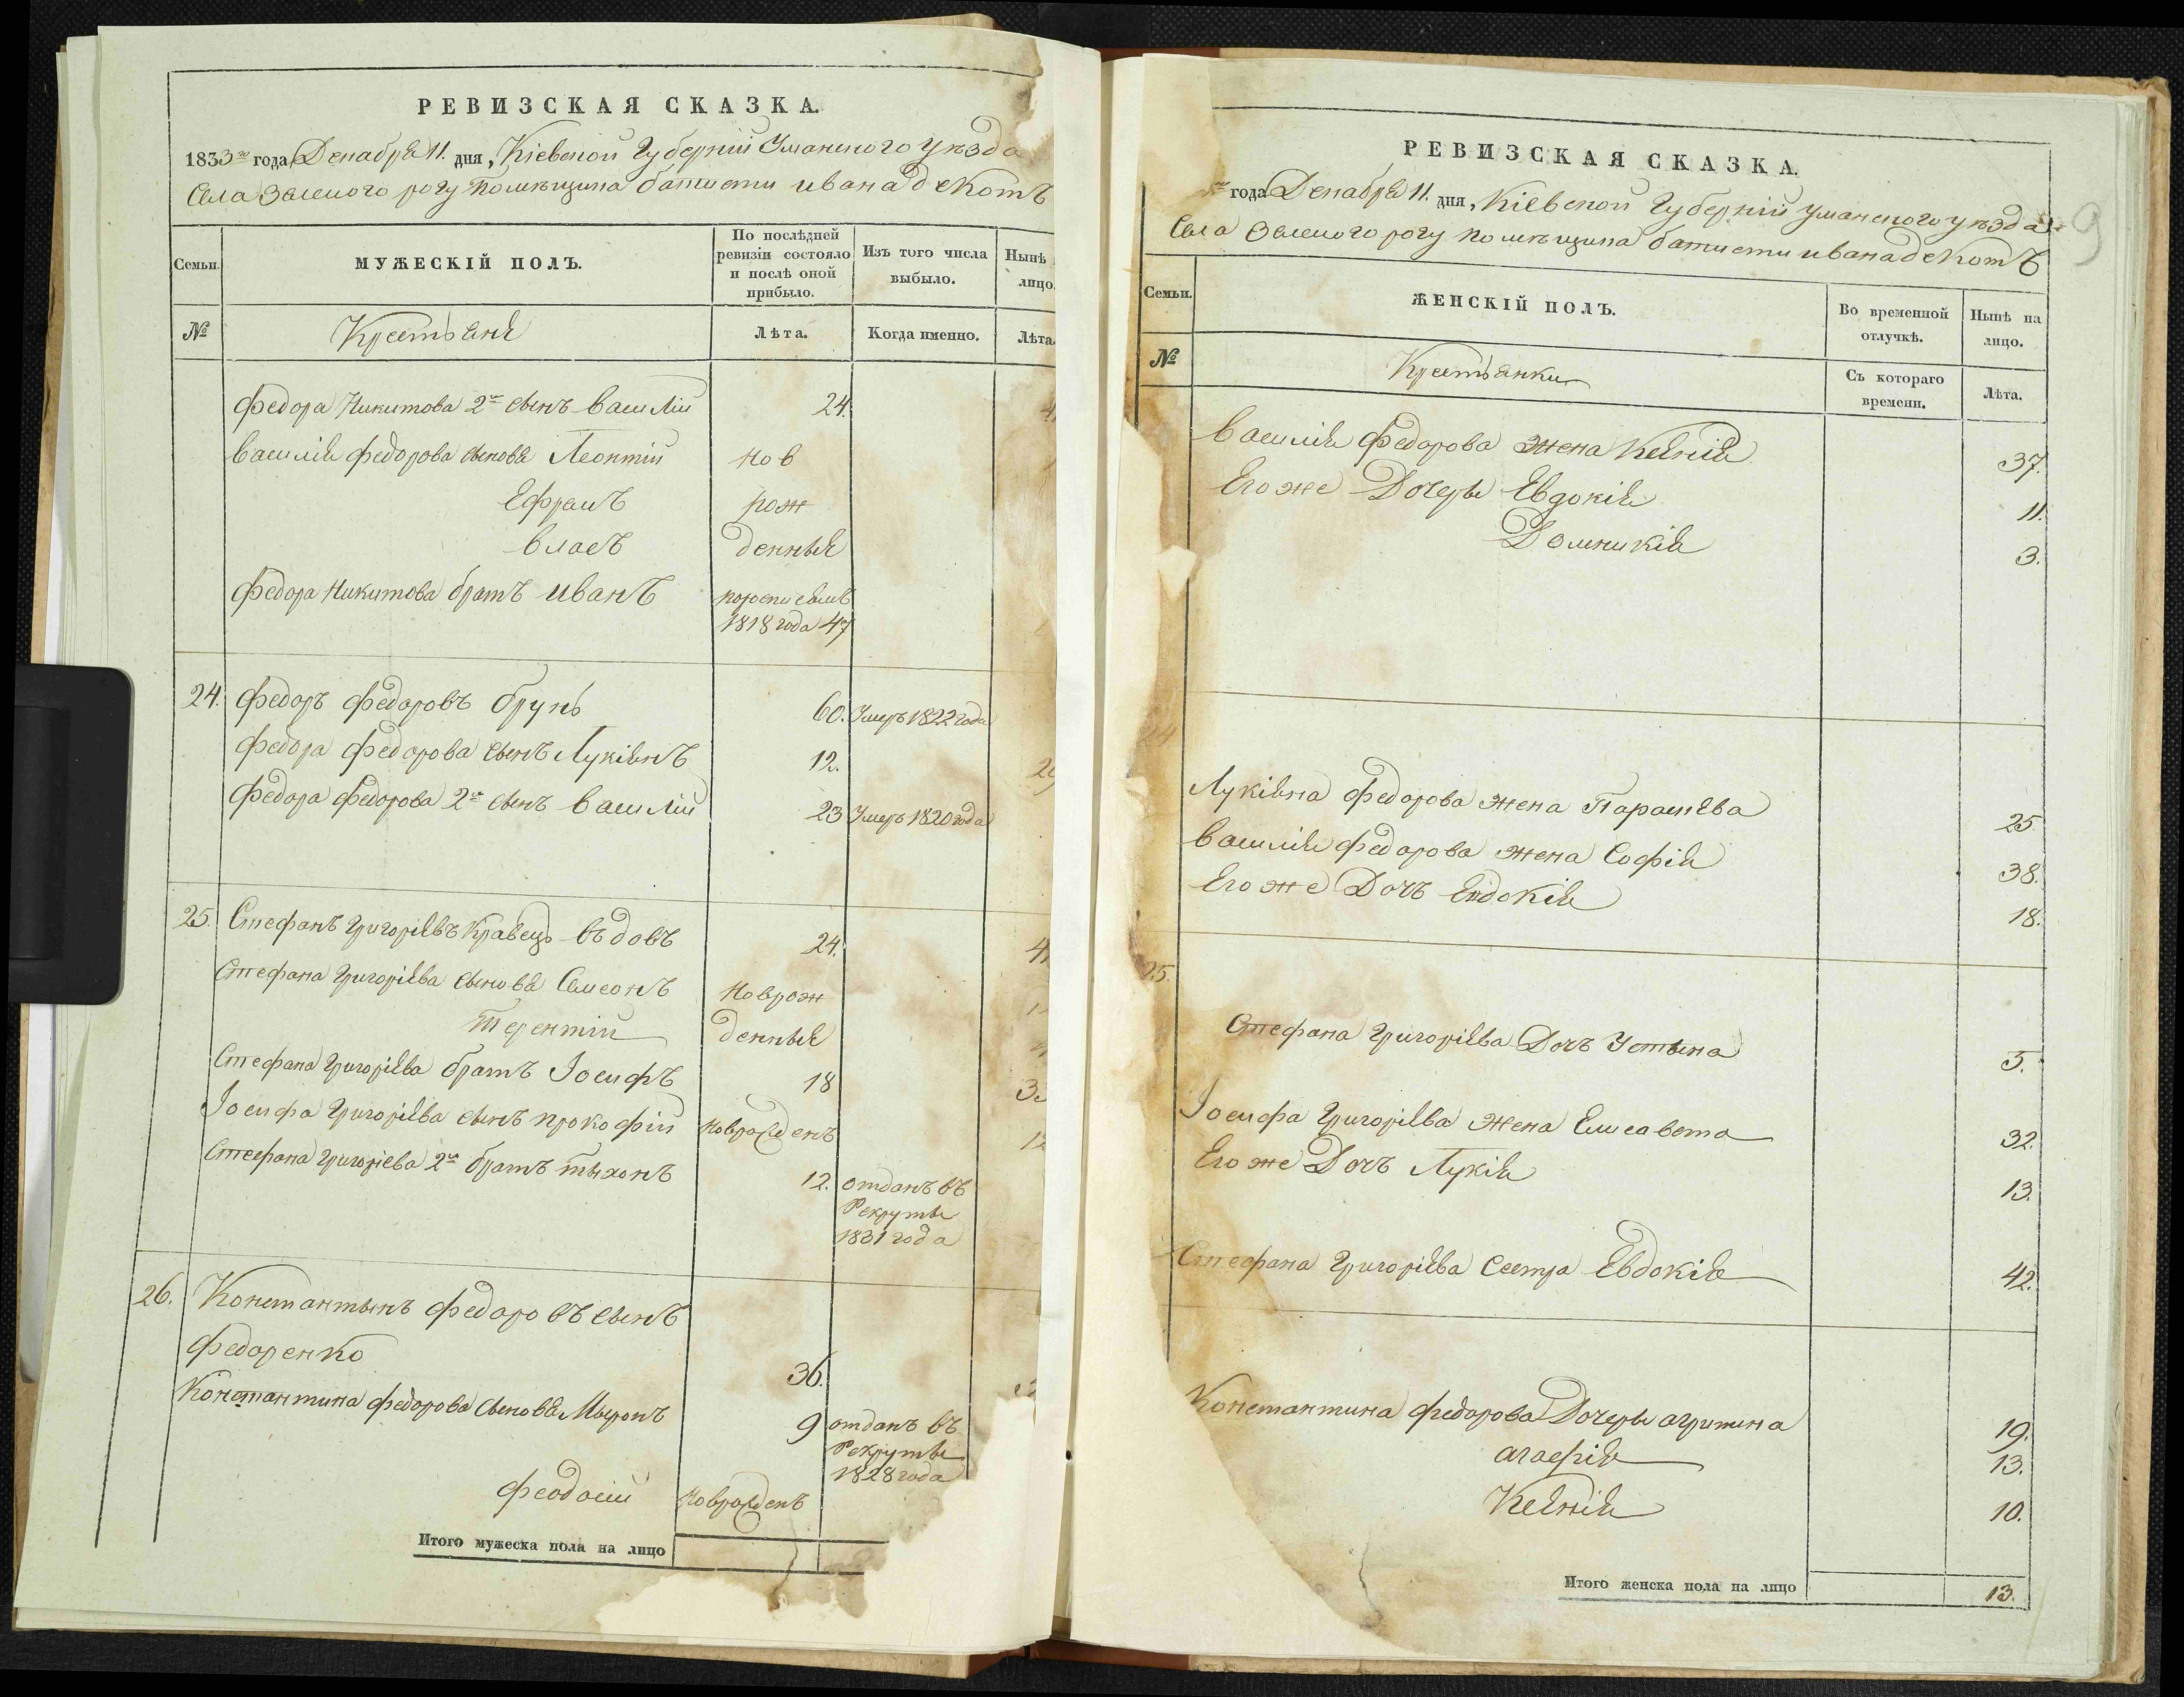 РЕВИЗСКАЯ СКАЗКА.
1833го года Декабря 11. дня, Кіевской Губерніи Уманского уѣзда
Села Зеленого рогу помѣщика батисти ивана деКотъ
Семьи.
МУЖЕСКІЙ ПОЛЪ.
По послѣдней ревизіи состояло и послѣ оной прибыло.
Изъ того числа выбыло.
Нынѣ лицо.
№
Крестьяне
Лѣта.
Когда именно.
Лѣта.
федора Никитова 2й сынъ василій 24.
василія федорова сыновя Леонтій нов
Ефремъ рож
власъ денныя
федора Никитова братъ иванъ
1818 года 47
24. федоръ федоровъ брунь 60. Умеръ 1822 года
федора федорова сынъ Лукіянъ 12.
федора федорова 2й сынъ василій 23 Умеръ 1820 года
25. Стефанъ Григоріевъ Кравецъ вдовъ 24.
Стефана Григоріева сыновя Симеонъ Новрож
Терентій денныя
Стефана Григоріева братъ Іосифъ 18
Іосифа Григоріева сынъ прокофій Новрожденъ
Стефана Григоріева 2й братъ тыхонъ 12. отданъ въ
Рекруты
1831 года
26. Константынъ федоровъ сынъ
федоренко 36.
Константина федорова сыновя Мыронъ 9 отданъ въ
Рекруты
1828 года
феодосій Новрожденъ
Итого мужеска пола на лицо
РЕВИЗСКАЯ СКАЗКА.
года Декабря 11. дня, Кіевской Губерніи уманского уѣзда
9
Села Зеленого рогу помѣщика батисти ивана деКотъ
Семьи.
ЖЕНСКІЙ ПОЛЪ.
Во временной отлучкѣ.
Нынѣ на лицо.
№
Крестьянки
Съ котораго времени.
Лѣта.
василія федорова жена Ксенія 37.
Его же Дочеры Евдокія 11.
Домникія 3.
24.
Лукіяна федорова жена Параскева 25.
василія федорова жена Софія 38.
Его же Дочъ Евдокія 18.
25.
Стефана Григоріева Дочъ Устына 5.
Іосифа Григоріева жена Елисавета 32.
Его же Дочъ Лукія 13.
Стефана Григоріева Сестра Евдокія 42.
Константина федорова Дочеры агрипина 19.
агафія 13.
Ксенія 10.
Итого женска пола на лицо 13.